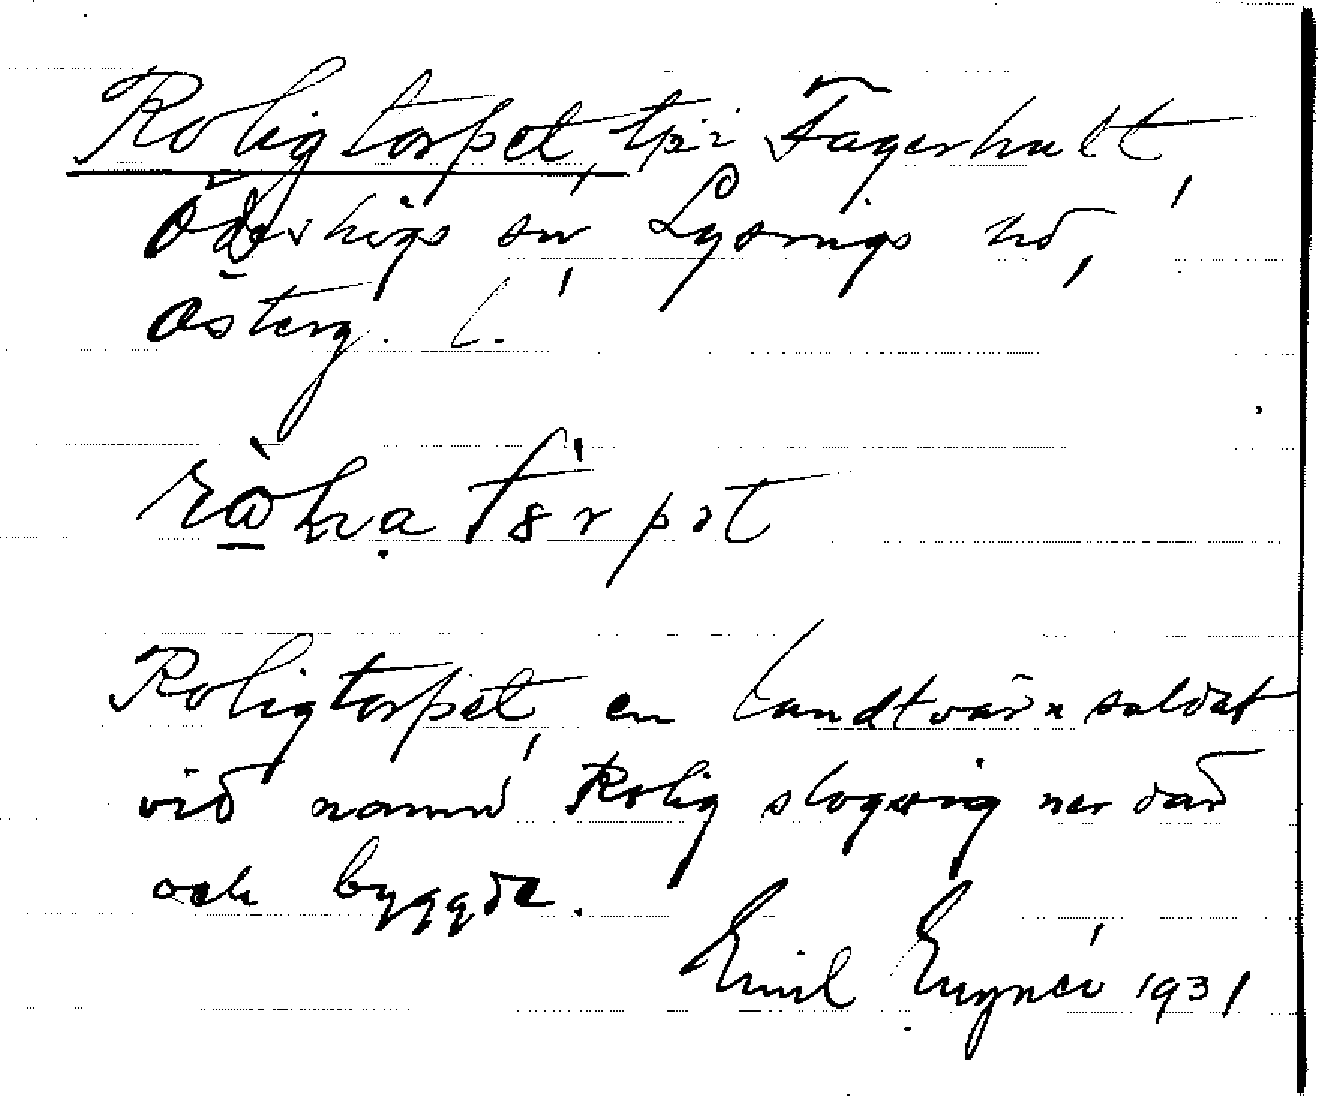 Roligtorpet, tp i Fagerhult,
Ödeshögs sn, Lysings hd,
Österg. l.
Roligtorpet, en landtvärnsoldat
vid namn Rolig slog sig ner där
och byggde.
Emil 1931